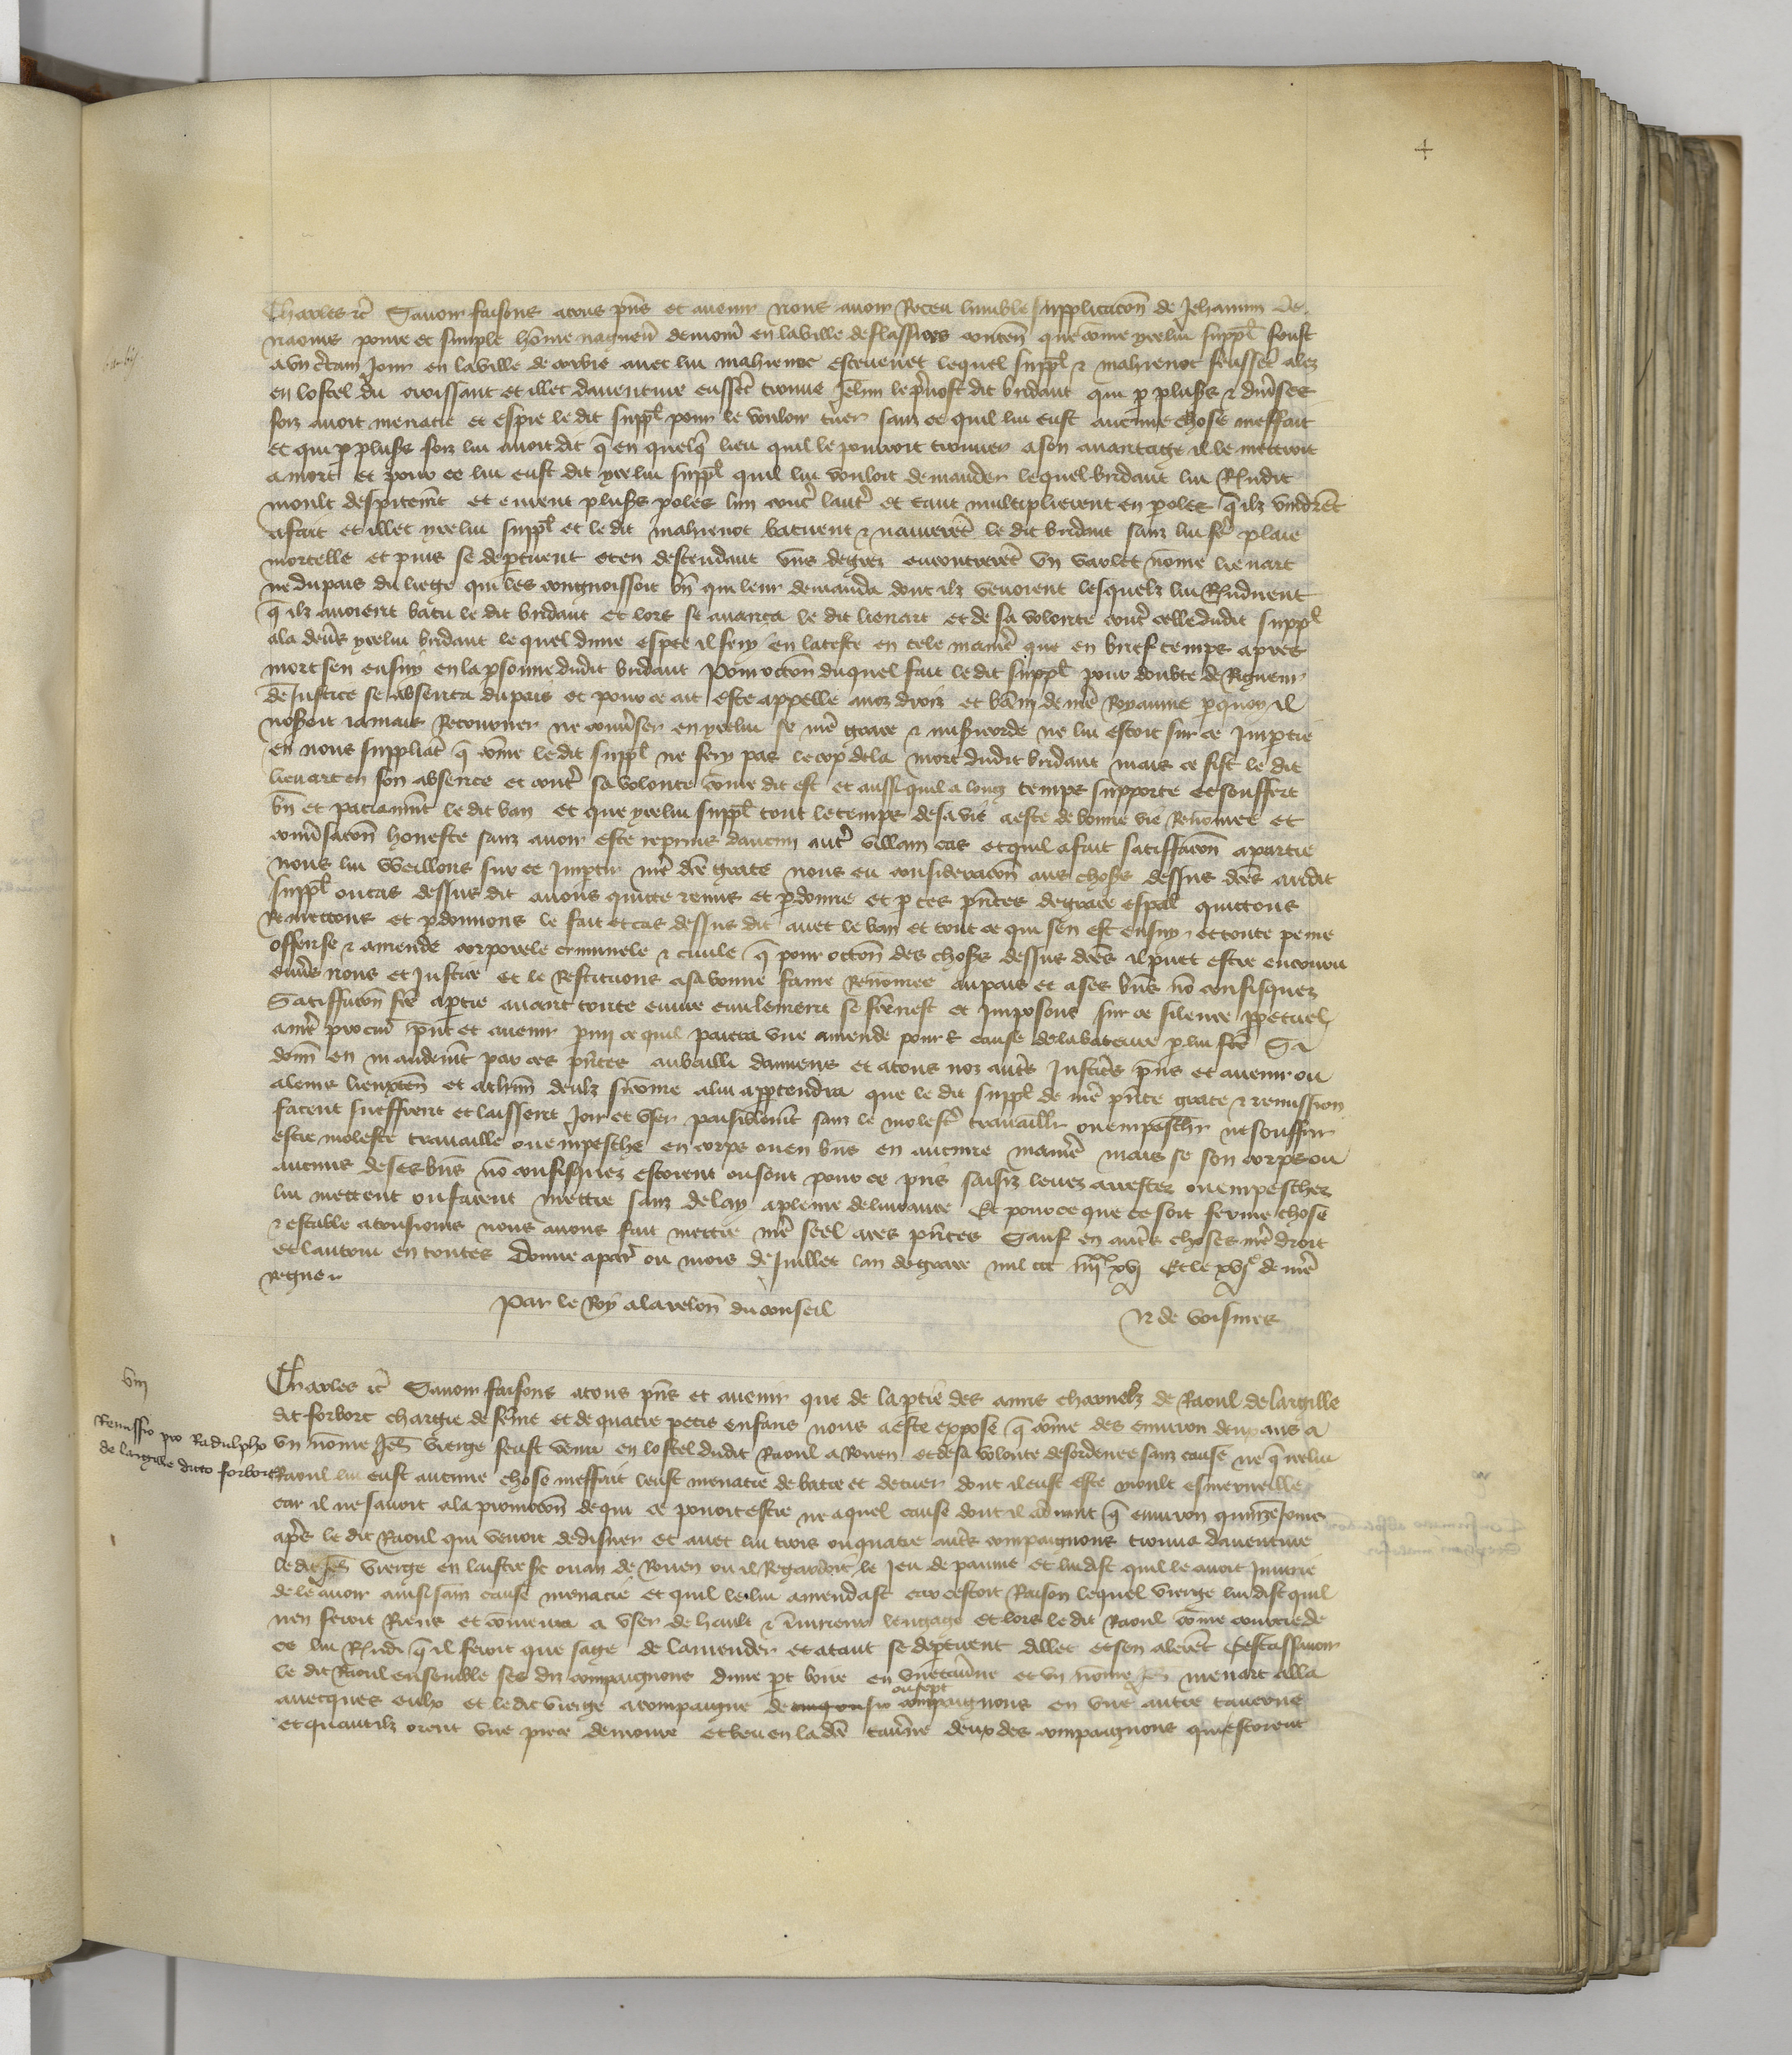 Charles etc Savoir faisons a tous pñs et avenir nous avoir Receu lumble supplicacõn de Jehannin de
naoure povre et simple hõme nagueres demour en la ville de flassires conteñ que cõme ycelui suppl feust
a un certain Jour en la ville de corbie avec lui mahienot estevenet lequel suppl & mahienot feussent alez
en lostel du croissant et illec daventure eussent trouve Jehan le prevost dit bridaut qui p plusrs & diverses
foiz avoit menacie et espie le dit suppl pour le vouloir tuer sanz ce quil lui eust aucune chose meffait
et qui p plusrs foiz lui avoit dit q̃ en quelq̃ lieu quil le pourroit trouver a son avantage il le mettroit
a mort et pour ce lui eust dit ycelui suppl quil lui vouloit demander lequel bridaut lui Rñdit
moult despitemt et eurent plusrs poles lun contr lautr et tant multiplierent en poles q̃ ilz vindrẽt
a fait et illec ycelui suppl et le dit mahienot batirent & navrerẽt le dit bridaut sanz lui fẽ plaie
mortelle et puis se dept̃irent et en descendant uns degrez encontrerẽt un varlet nõme lienart
ne du pais du liege qui les congnoissoit bñ qui leur demanda dont ilz venoient lesquelz lui Rñdirent
q̃ ilz avoient batu le dit bridaut et lors se avança le dit lienart et de sa volonte contr celle dudit suppl
ala devs ycelui bridaut lequel dune espee il fery en la teste en tele manir que en brief temps apres
mort sen ensuy en la psonne dudit bridaut Pour occõn duquel fait le dit suppl pour doubte de Rigueur
de Justice se absenta du pais et pour ce ait este appelle a noz droiz et bãny de nr̃e Royaume pquoy il
noseroit jamais Retourner ne converser en ycelui se nr̃e grace & misericorde ne lui estoit sur ce Imptie
en nous suppliãt q̃ cõme le dit suppl ne fery pas le cop de la mort dudit bridaut mais ce fist le dit
lienart en son absence et contr sa volonte cõme dit est et aussi quil a long temps supporte et souffert
bñ et paciãmt le dit ban et que ycelui suppl tout le temps de sa vie a este de bonne vie Renõmee et
conversacõn honeste sanz avoir este repris daucun autr villain cas et quil a fait satiffacõn a partie
nous lui vueillons sur ce Imptir nr̃e dce grace nous eu consideracõn aus choses dessus dces audit
suppl ou cas dessus dit avons quitte remis et pdonne et p ces pñtes de grace espal quittons
Remettons et pdonnons le fait et cas dessus dit avec le ban et tout ce qui sen est ensuy & et toute peine
offense & amende corporele criminele & civile q̃ pour occõn des choses dessus dces il puet estre encouru
envs nous et Justice et le Restituons a sa bonne fame Renõmee au pais et a ses bñs nõ confisquez
Satiffacõn fce a ptie avant toute euvre civilement se fce nest et Imposons sur ce silence ppetuel
a nr̃e procur pñt et avenir pmi ce quil paiera une amende pour cause de la bateure p lui fce Si
donñ en mandemt par ces pñtes au bailli damiens et a tous noz autrs Justicrs pñs et avenir ou
a leurs lieuxteñ et a chũn deulz si cõme a lui apptendra que le dit suppl de nr̃e pñte grace & remission
facent sueffrent et laissent Joir et user paisiblemt sanz le molestr travaillr ou empeschr ne souffrir
estre moleste travaille ou empesche en corps ou en bñs en aucune manir mais se son corps ou
aucuns de ses bñs nõ confisquez estoient ou sont pour ce pris saisiz levez arrestez ou empeschez
lui mettent ou facent mettre sanz delay a pleine delivrance Et pour ce que ce soit ferme chose
& estable a tousjours nous avons fait mettre nr̃e seel a ces pñtes Sauf en autrs choses nr̃e droit
et lautrui en toutes Donne a par ou mois de Juillet lan de grace mil ccc iiiixx xvj Et le xvje de nr̃e
regne
Par le Roy a la relõn du conseil N de voisines
viij
Remissio pro Radulpho
de largille dicto forbort
Charles etc Savoir faisons a tous pñs et avenir que de la ptie des amis charnelz de Raoul de largille
dit forbort chargie de fẽme et de quatre petis enfans nous a este expose q̃ cõme des environ deux ans a
un nõme Jeh vierge feust venu en lostel dudit Raoul a Rouen et de sa volonte desordenee sanz cause ne q̃ icelui
Raoul lui eust aucune chose meffait leust menacie de batre et de tuer dont il eust este moult esmerveillie
car il ne savoit a la promocõn de qui ce povoit estre ne a quel cause dont il advint q̃ environ quinze jours
aprs le dit Raoul qui venoit de disner et avec lui trois ou quatre autrs compaignons trouva daventure
le dit Jeh vierge en laistre st ouan de Rouen ou il Regardoit le Jeu de paume et lui dist quil le avoit Injurie
de le avoir ainsi sanz cause menacie et quil le lui amendast car cestoit Raison lequel vierge lui dist quil
nen feroit Riens et cõmenca a user de hault & injurieux lengage et lors le dit Raoul cõme courrocie de
ce lui Rñdi q̃ il feroit que sage de lamender et a tant se deptirent dillec et sen alerẽt Cestassavoir
le dit Raoul ensemble ses diz compaignons dune pt boire en une taverne et un nõme Jeh menart alla
avecques eulx et le dit vierge acompaigne de cinq ou six ou sept compaignons en une autre taverne
et quant ilz orent une piece demoure et beu en la dce taverne deux des compaignons qui estoient